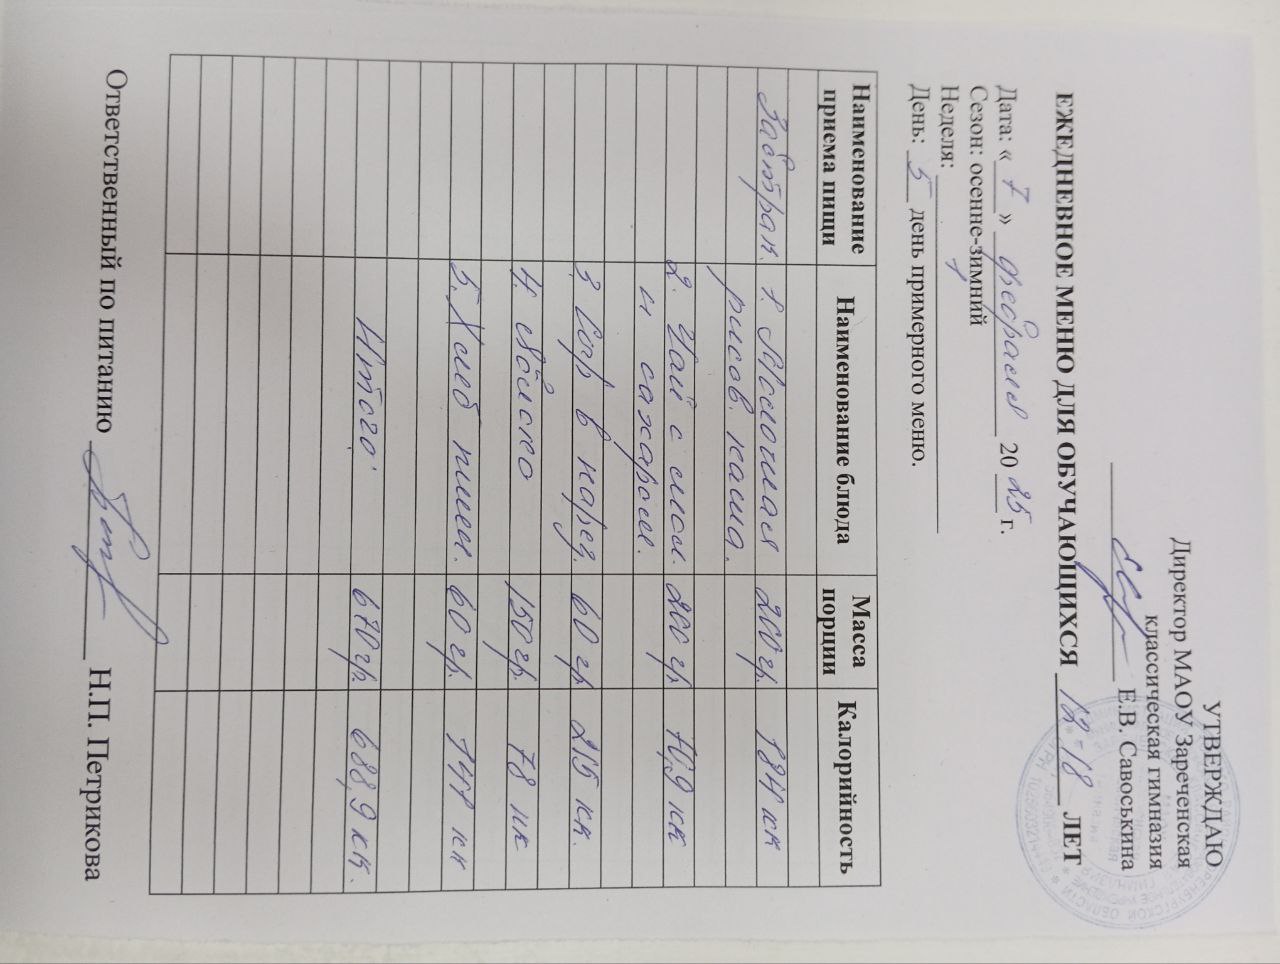 УТВЕРЖДАЮ
Директор МАОУ Зареченская
классическая гимназия
Е.В. Савоськина
ЕЖЕДНЕВНОЕ МЕНЮ ДЛЯ ОБУЧАЮЩИХСЯ 12-18 ЛЕТ
Дата: « 7 » февраля 2025 г.
Сезон: осенне-зимний
Неделя: 1
День: 5 день примерного меню.
Наименование приема пищи Наименование блюда Масса порции Калорийность
Завтрак. 1. Молочная 200 гр. 184 кк
рисов. каша.
2. Чай с мол. 200 гр
и сахаром.
3. Сыр в нарез. 60 гр 215 кк.
4. Яблоко 150 гр. 78 кк
5. Хлеб пшен. 60 гр. 141 кк
Итого: 670 гр. 688,9 кк.
Ответственный по питанию Н.П. Петрикова